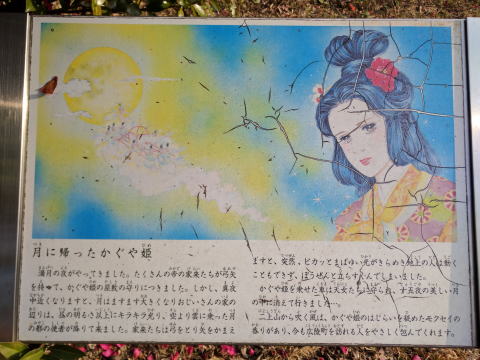 月に帰ったかぐや姫
満月の夜がやってきました。たくさんの帝の家来たちが弓矢
を持って、かぐや姫の屋敷の守りにつきました。しかし、真夜
中近くなりますと、月はますます大きくなりおじいさんの家の
辺りは、昼の明るさ以上にキラキラ光り、空より雲に乗った月
の都の使者が降りて来ました。家来たちは弓をとり矢をかまえ
ますと、突然、ピカッとまばゆい光がきらめき地上の人は動く
こともできず、ぼうぜんと立ちすくんでしまいました。
かぐや姫を乗せた車は天女たちに守られ、十五夜の美しい月
の中に消えて行きました…
二上山から吹く風は、かぐや姫のはじらいを秘めたモクセイの
香りがあり、今も広陵町を訪れる人をやさしく包んでくれます。